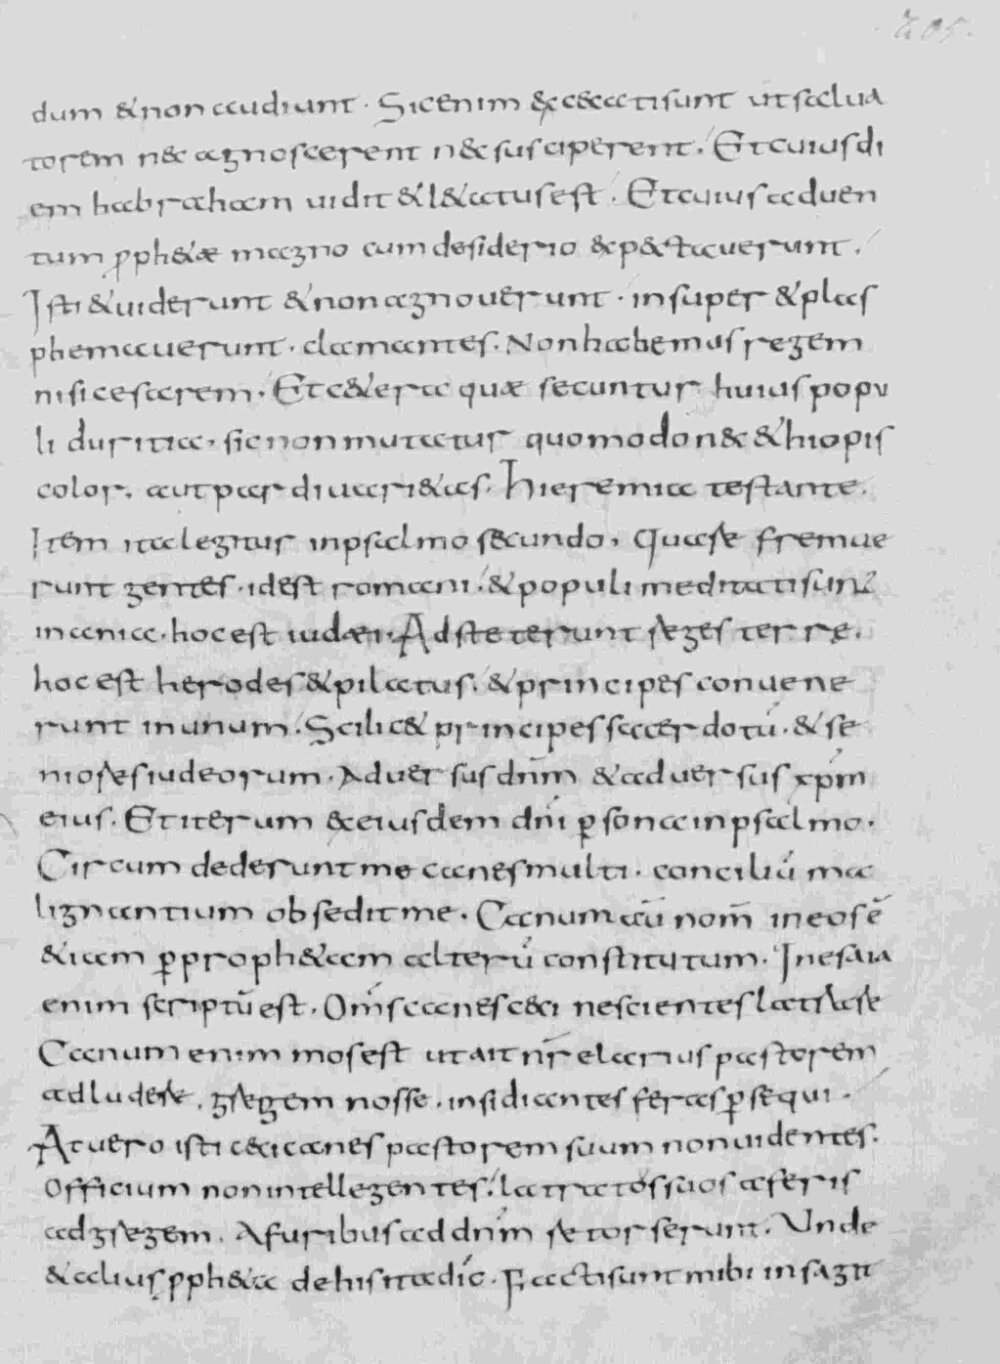 205.
dum & non audiunt. Sic enim excecati sunt ut salua
torem nec agnoscerent nec susciperent. Et cuius di
em habraham uidit & l&atus est. Et cuius aduen
tum pph&ae magno cum desiderio exp&ctauerunt.
Isti & uiderunt & non agnouerunt. insuper & plas
phemauerunt. clamantes. Non habemus regem
nisi cesarem. Et c&era quae secuntur huius popu
li duritia. sic non mutatur quomodo nec &hiopis
color. aut pardi uari&as. Hieremia testante.
Item ita legitur in psalmo secundo. Quare fremue
runt gentes. id est romani. & populi meditati sunt
inania. hoc est iudaei. Adsteterunt reges terrę.
hoc est herodes & pilatus. & principes conuene
runt in unum. Scilic& principes sacerdotū. & se
niores iudeorum. Aduersus dnm̄ & aduersus xpm̄
eius. Et iterum ex eiusdem dni̅ psona in psalmo.
Circumdederunt me canes multi. conciliū ma
lignantium obsedit me. Canum aū nom̄ in eos ē
&iam p proph&am alterū constitutum. In esaia
enim scriptū est. Om̄s canes ceci nescientes latrare
Canum enim mos est ut ait nr̄ elarius pastorem
adludere. gregem nosse. insidiantes feras psequi.
At uero isti ceci canes pastorem suum non uidentes.
officium non intellegentes. latratos suos a feris
ad gregem. A furibus ad dnm̄ retorserunt. Unde
& alius pph&a de his ita dic̄. Facti sunt mihi in sagit